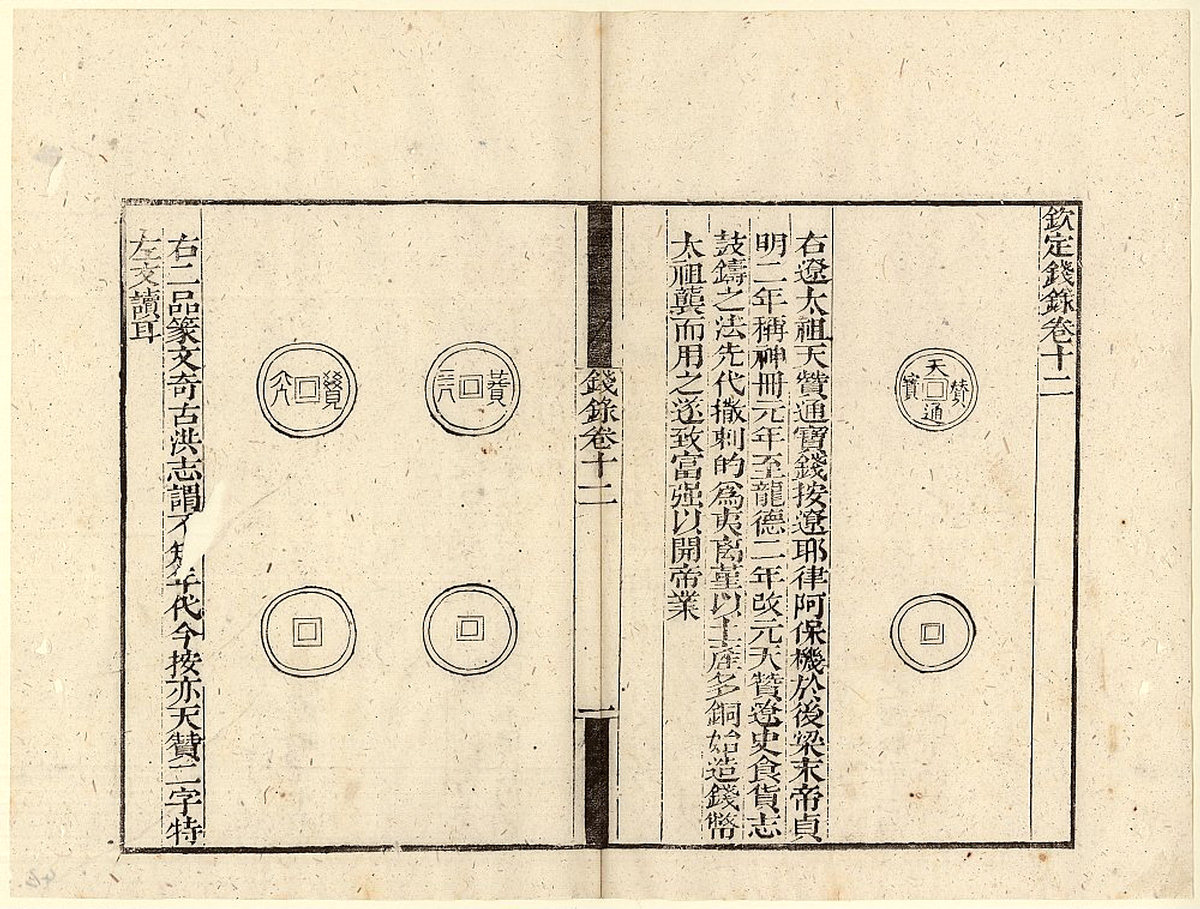 欽定錢錄卷十二
天贊通寶
右遼太祖天贊通寶錢按遼耶律阿保機於後梁末帝貞
明二年稱神冊元年至龍德二年改元天贊遼史食貨志
鼓鑄之法先代撒剌的爲夷离菫以土產多銅始造錢幣
太祖龔而用之遂致富强以開帝業
錢錄卷十二
一
右二品篆文奇古洪志謂不知年代今按亦天贊二字特
左文讀耳